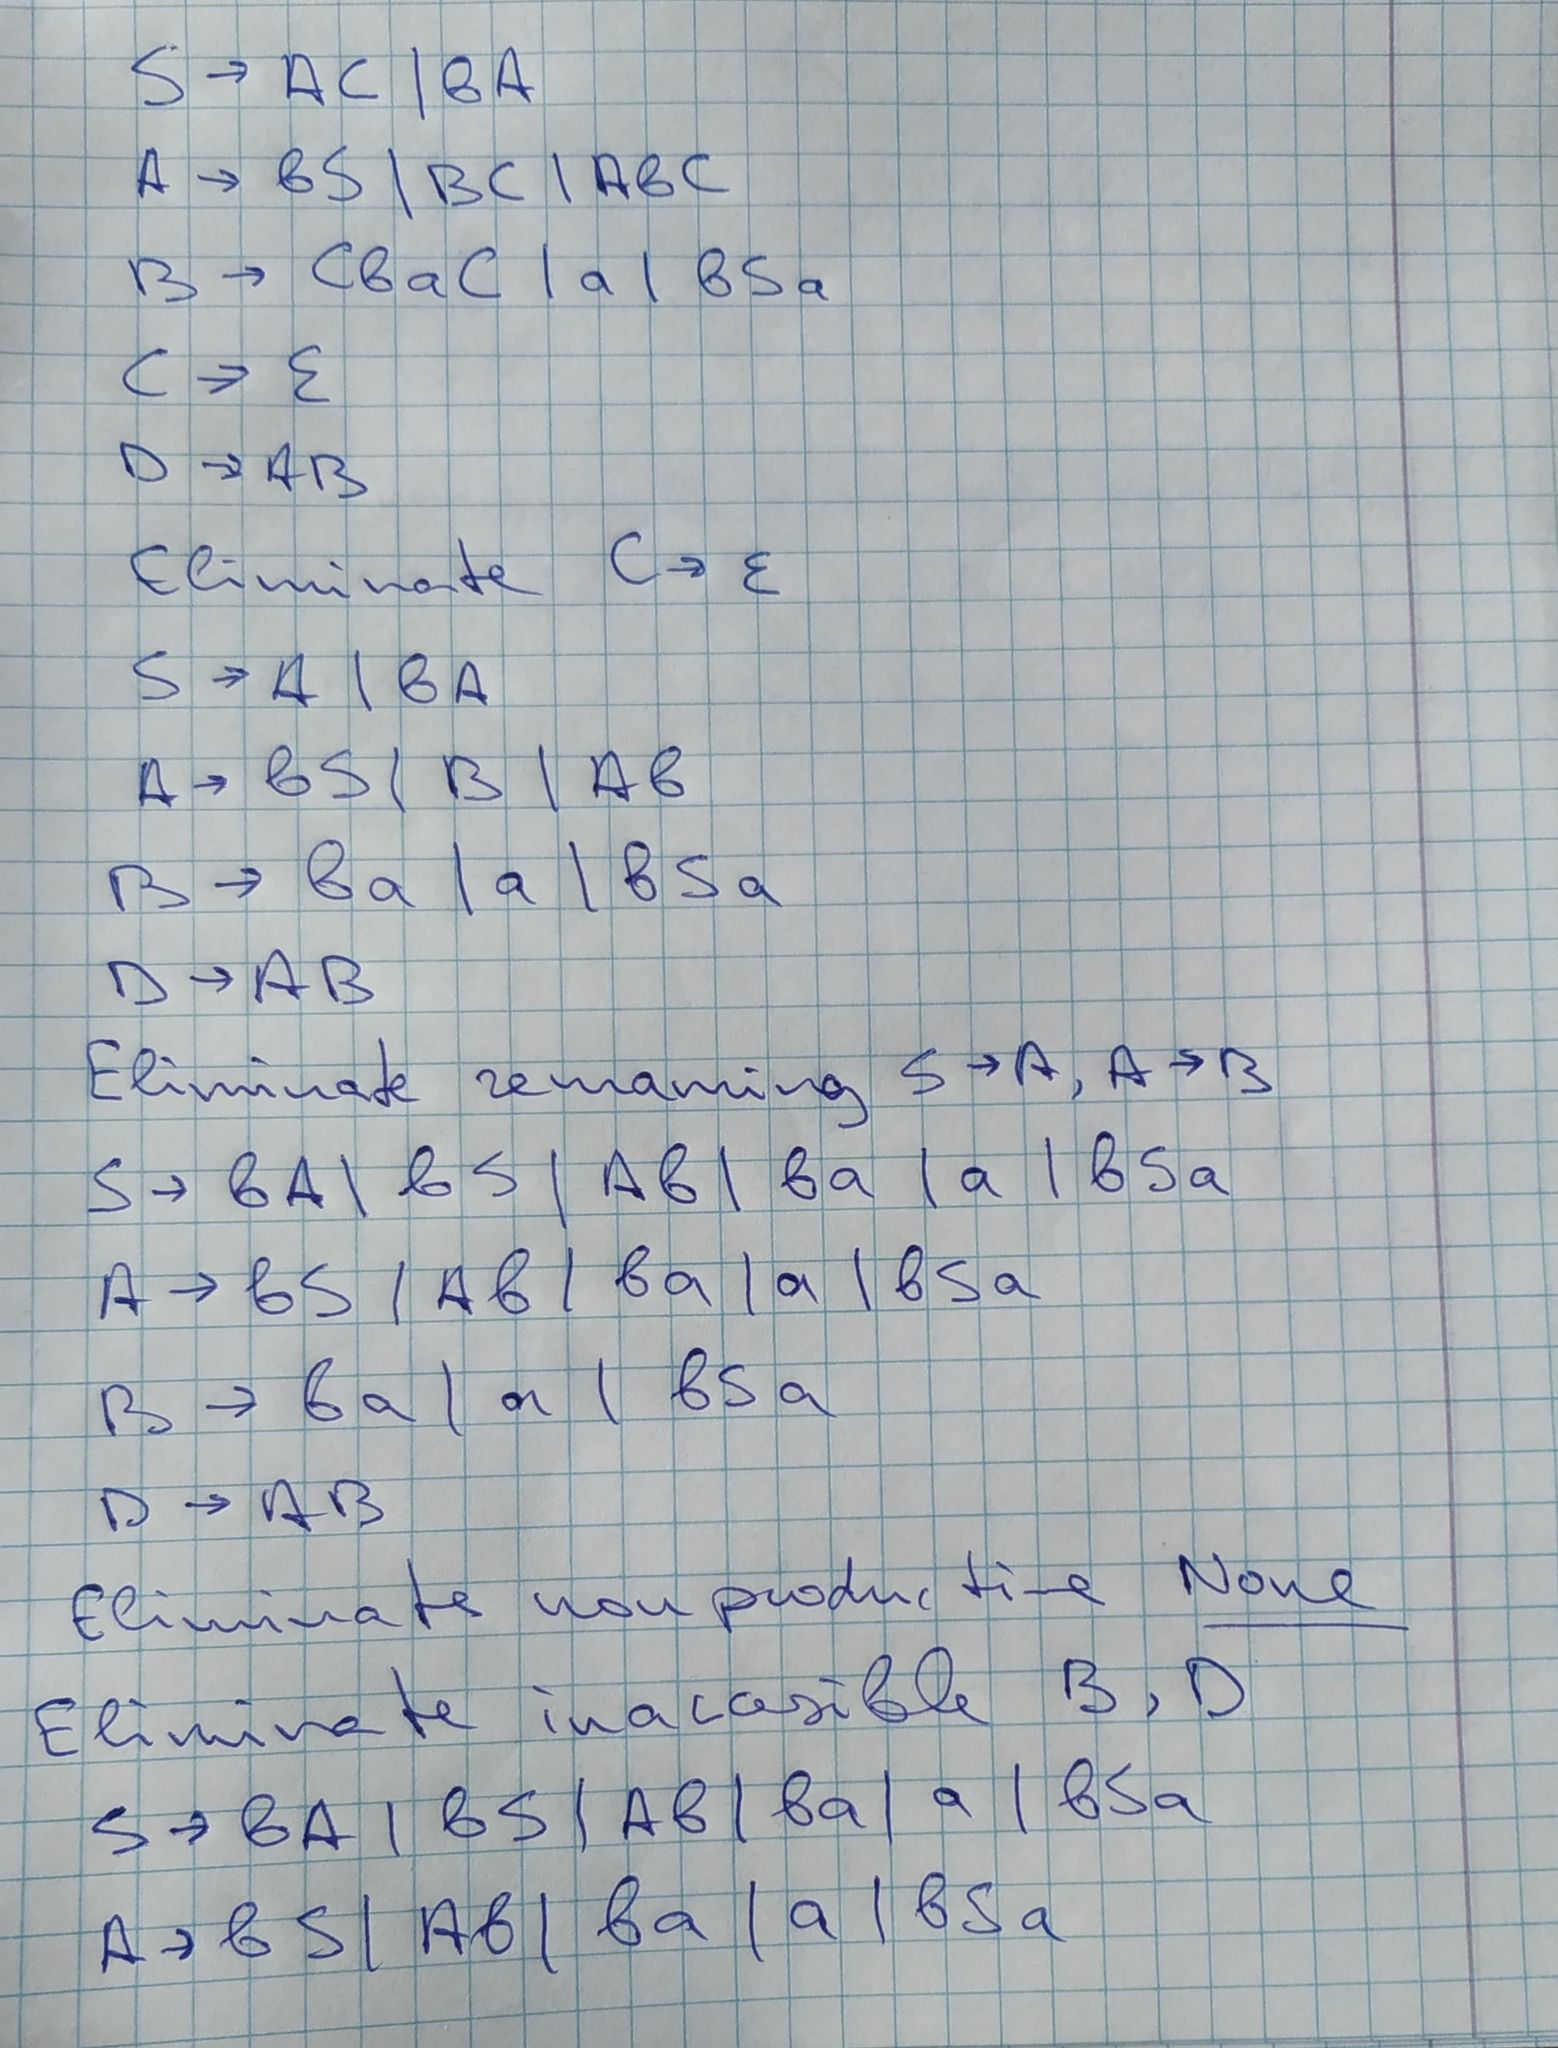 S → AC | bA
A → bS | BC | AbC
B → CbaC | a | bSa
C → ε
D → AB
Eliminate C → ε
S → A | bA
A → bS | B | Ab
B → ba | a | bSa
D → AB
Eliminate remaming S → A, A → B
S → bA | bS | Ab | ba | a | bSa
A → bS | Ab | ba | a | bSa
B → ba | a | bSa
D → AB
Eliminate nonproductive None
Eliminate inaccesible B, D
S → bA | bS | Ab | ba | a | bSa
A → bS | Ab | ba | a | bSa